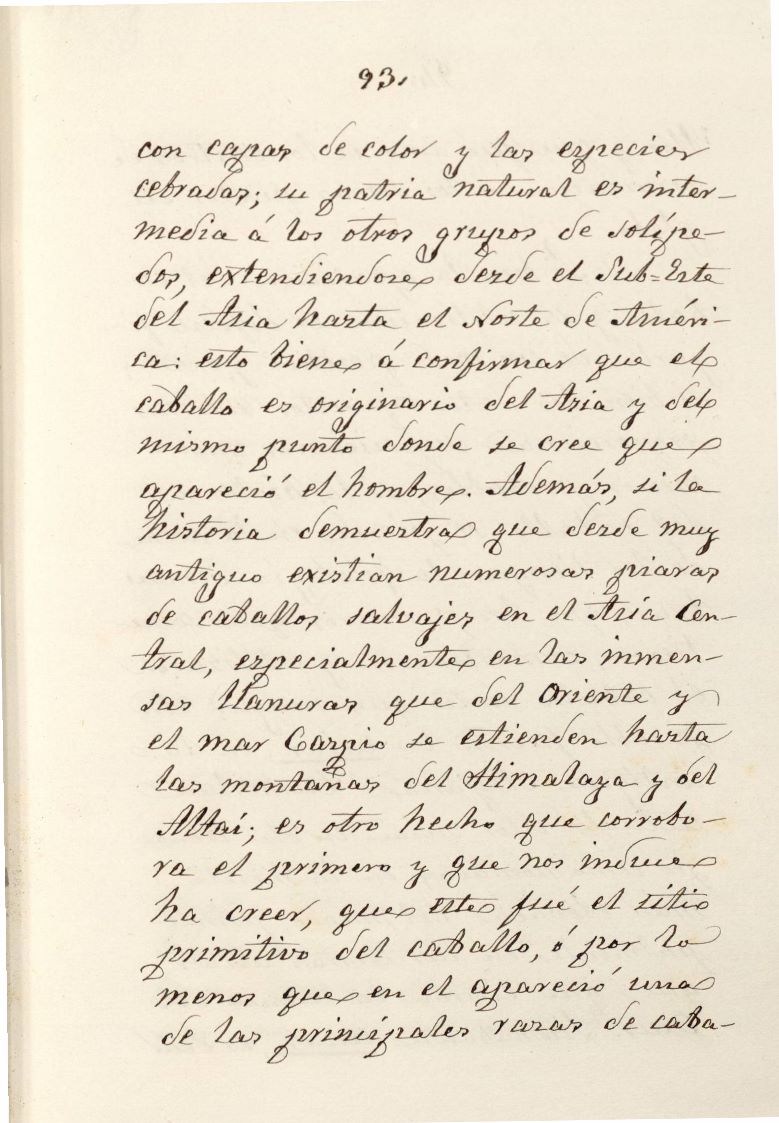 93.
con capas de color y las especies
cebradas; su patria natural es inter-
media á los otros grupos de solípe-
dos, extendiendose desde el Sub=Este
del Asia hasta el Norte de Améri-
ca: esto biene á confirmar que el
caballo es originario del Asia y del
mismo punto donde se cree que
apareció el hombre. Además, si la
historia demuestra que desde muy
antiguo existian numerosas piaras
de caballos salvajes en el Asia Cen-
tral, especialmente en las inmen-
sas llanuras que del Oriente y
el mar Caspio se estienden hasta
las montañas del Himalaya y del
Altaí; es otro hecho que corrobo-
ra el primero y que nos induce
ha creer, que este fué el sitio
primitivo del caballo, ó por lo
menos que en el apareció una
de las principales razas de caba-